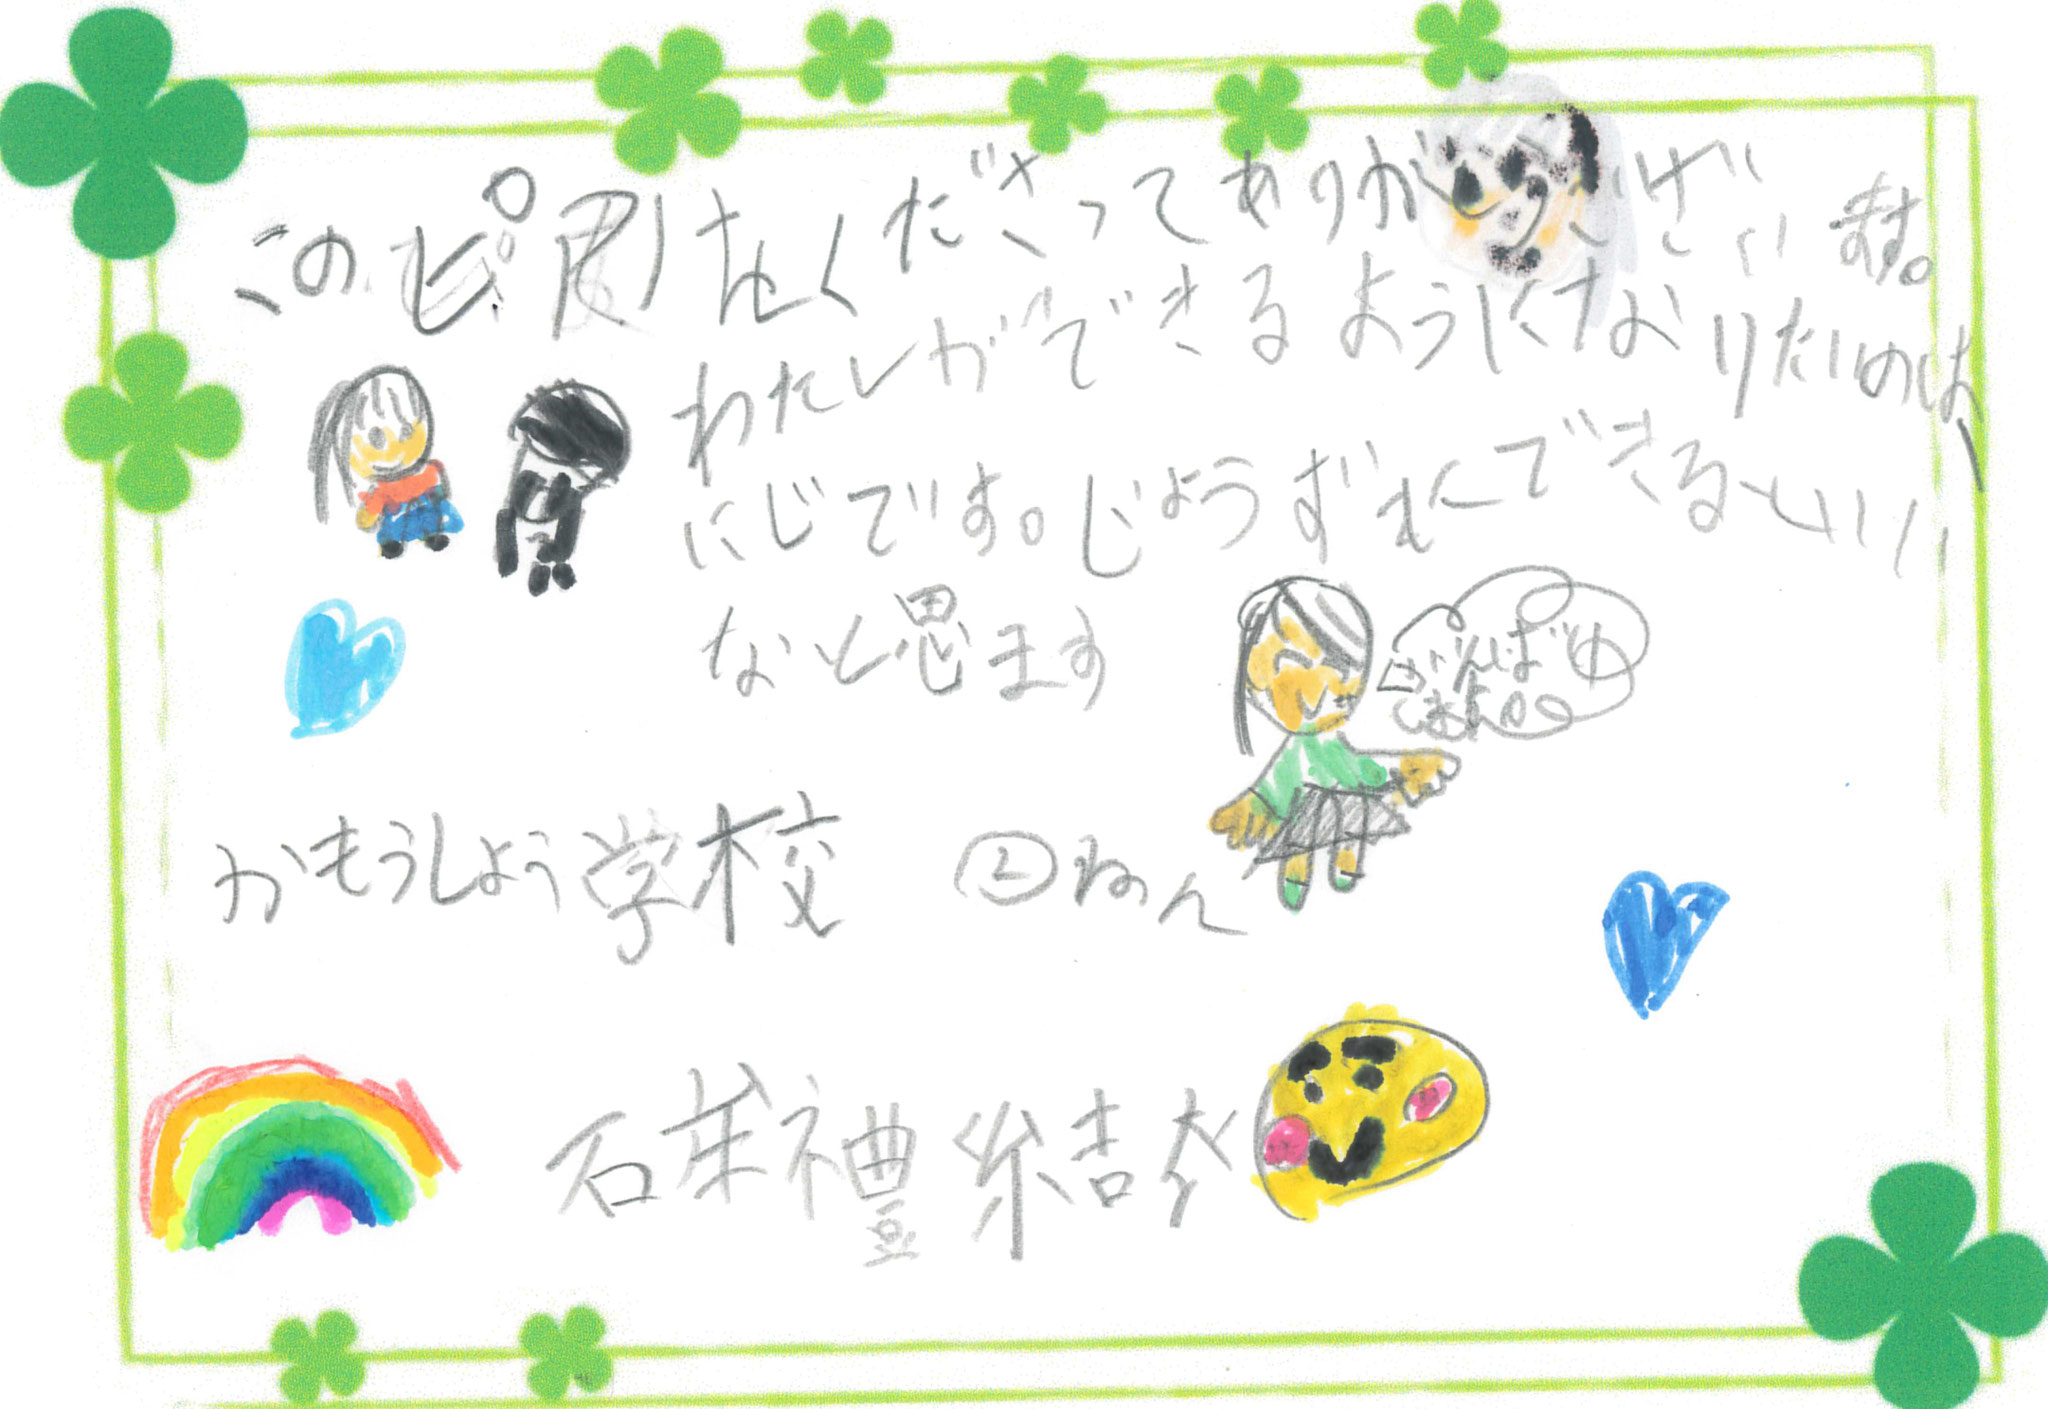 このピアノをくださってありが ござい ます。
わたしができるようになりたいのは、
にじです。じょうずにできるといい
なと思ます
がんばり
しまよ。
かもうしよう学校 ②ねん
石 禮 結